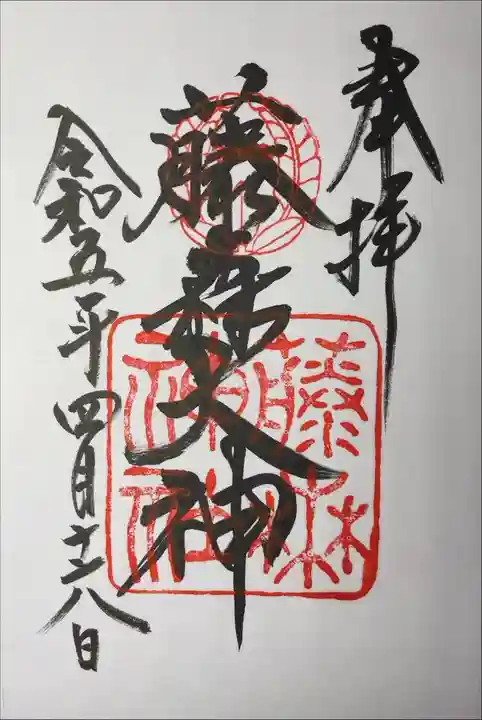 奉拝
藤森大神
藤森神社
令和五年四月十六日